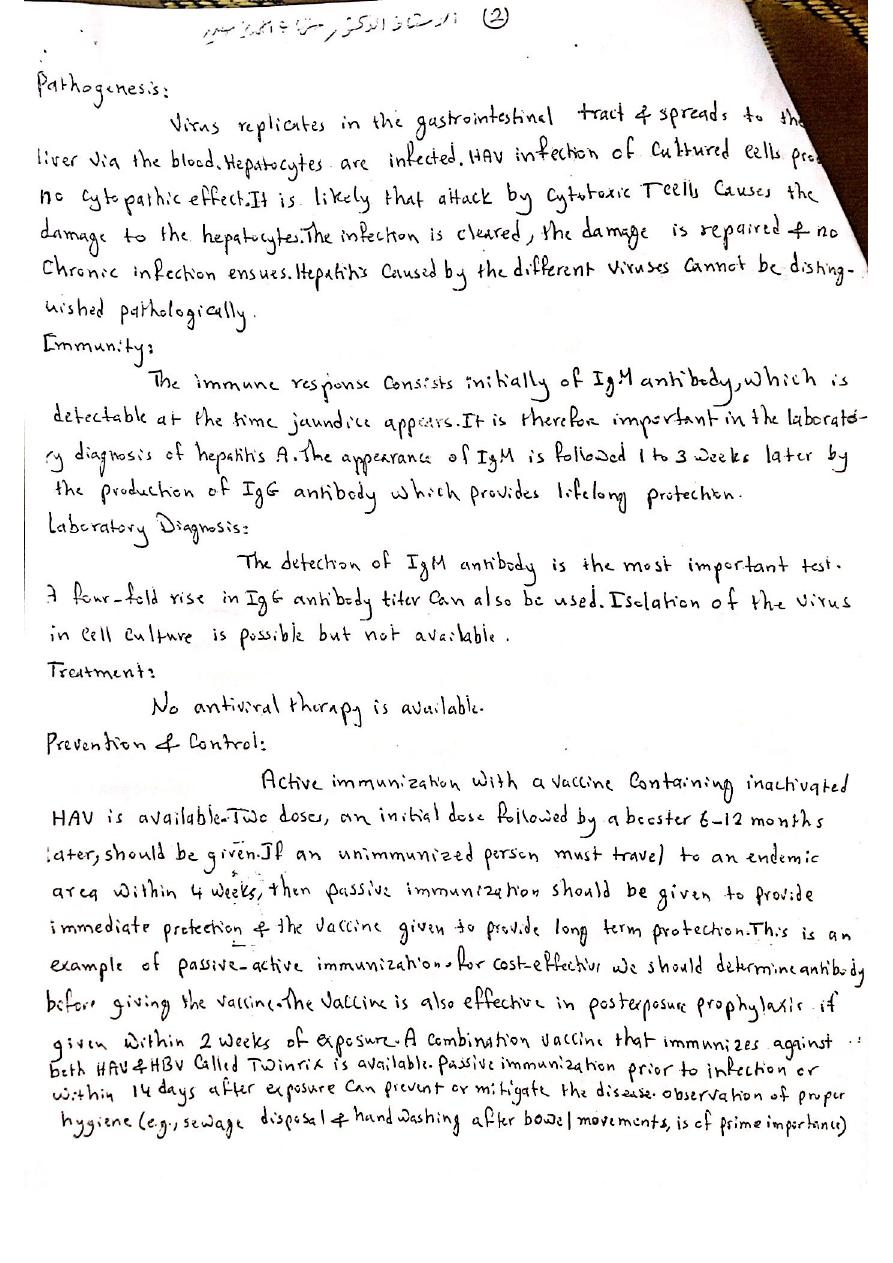 (2) الاستاذ الدكتور
Pathogenesis:
Virus replicates in the gastrointestinal tract & spreads to the
liver via the blood. Hepatocytes are infected. HAV infection of Cultured cells
no cytopathic effect. It is likely that attack by Cytotoxic T cells Causes the
damage to the hepatocytes. The infection is cleared, the damage is repaired & no
Chronic infection ensues. Hepatitis Caused by the different viruses Cannot be disting-
uished pathologically.
Emmunity:
The immune response Consists initially of IgM antibody, which is
detectable at the time jaundice appears. It is therefor important in the laborato-
ry diagnosis of hepatitis A. The appearance of IgM is followed 1 to 3 weeks later by
the production of IgG antibody which provides lifelong protection.
Laboratory Diagnosis:
The detection of IgM antibody is the most important test.
A four-fold rise in IgG antibody titer Can also be used. Isolation of the virus
in Cell Culture is possible but not available.
Treatment:
No antiviral therapy is available.
Prevention & Control:
Active immunization with a vaccine Containing inactivated
HAV is available. Two doses, an initial dose followed by a booster 6-12 months
later, should be given. If an unimmunized person must travel to an endemic
area within 4 weeks, then passive immunization should be given to provide
immediate protection & the vaccine given to provide long term protection. This is an
example of passive-active immunization. For cost-effective we should determine antibody
before giving the vaccine. The Vaccine is also effective in postexposure prophylaxis if
given within 2 weeks of exposure. A Combination vaccine that immunizes against
both HAV & HBV Called Twinrix is available. Passive immunization prior to infection or
within 14 days after exposure Can prevent or mitigate the disease. observation of proper
hygiene (e.g., sewage disposal & hand washing after bowel movements, is of prime importance)